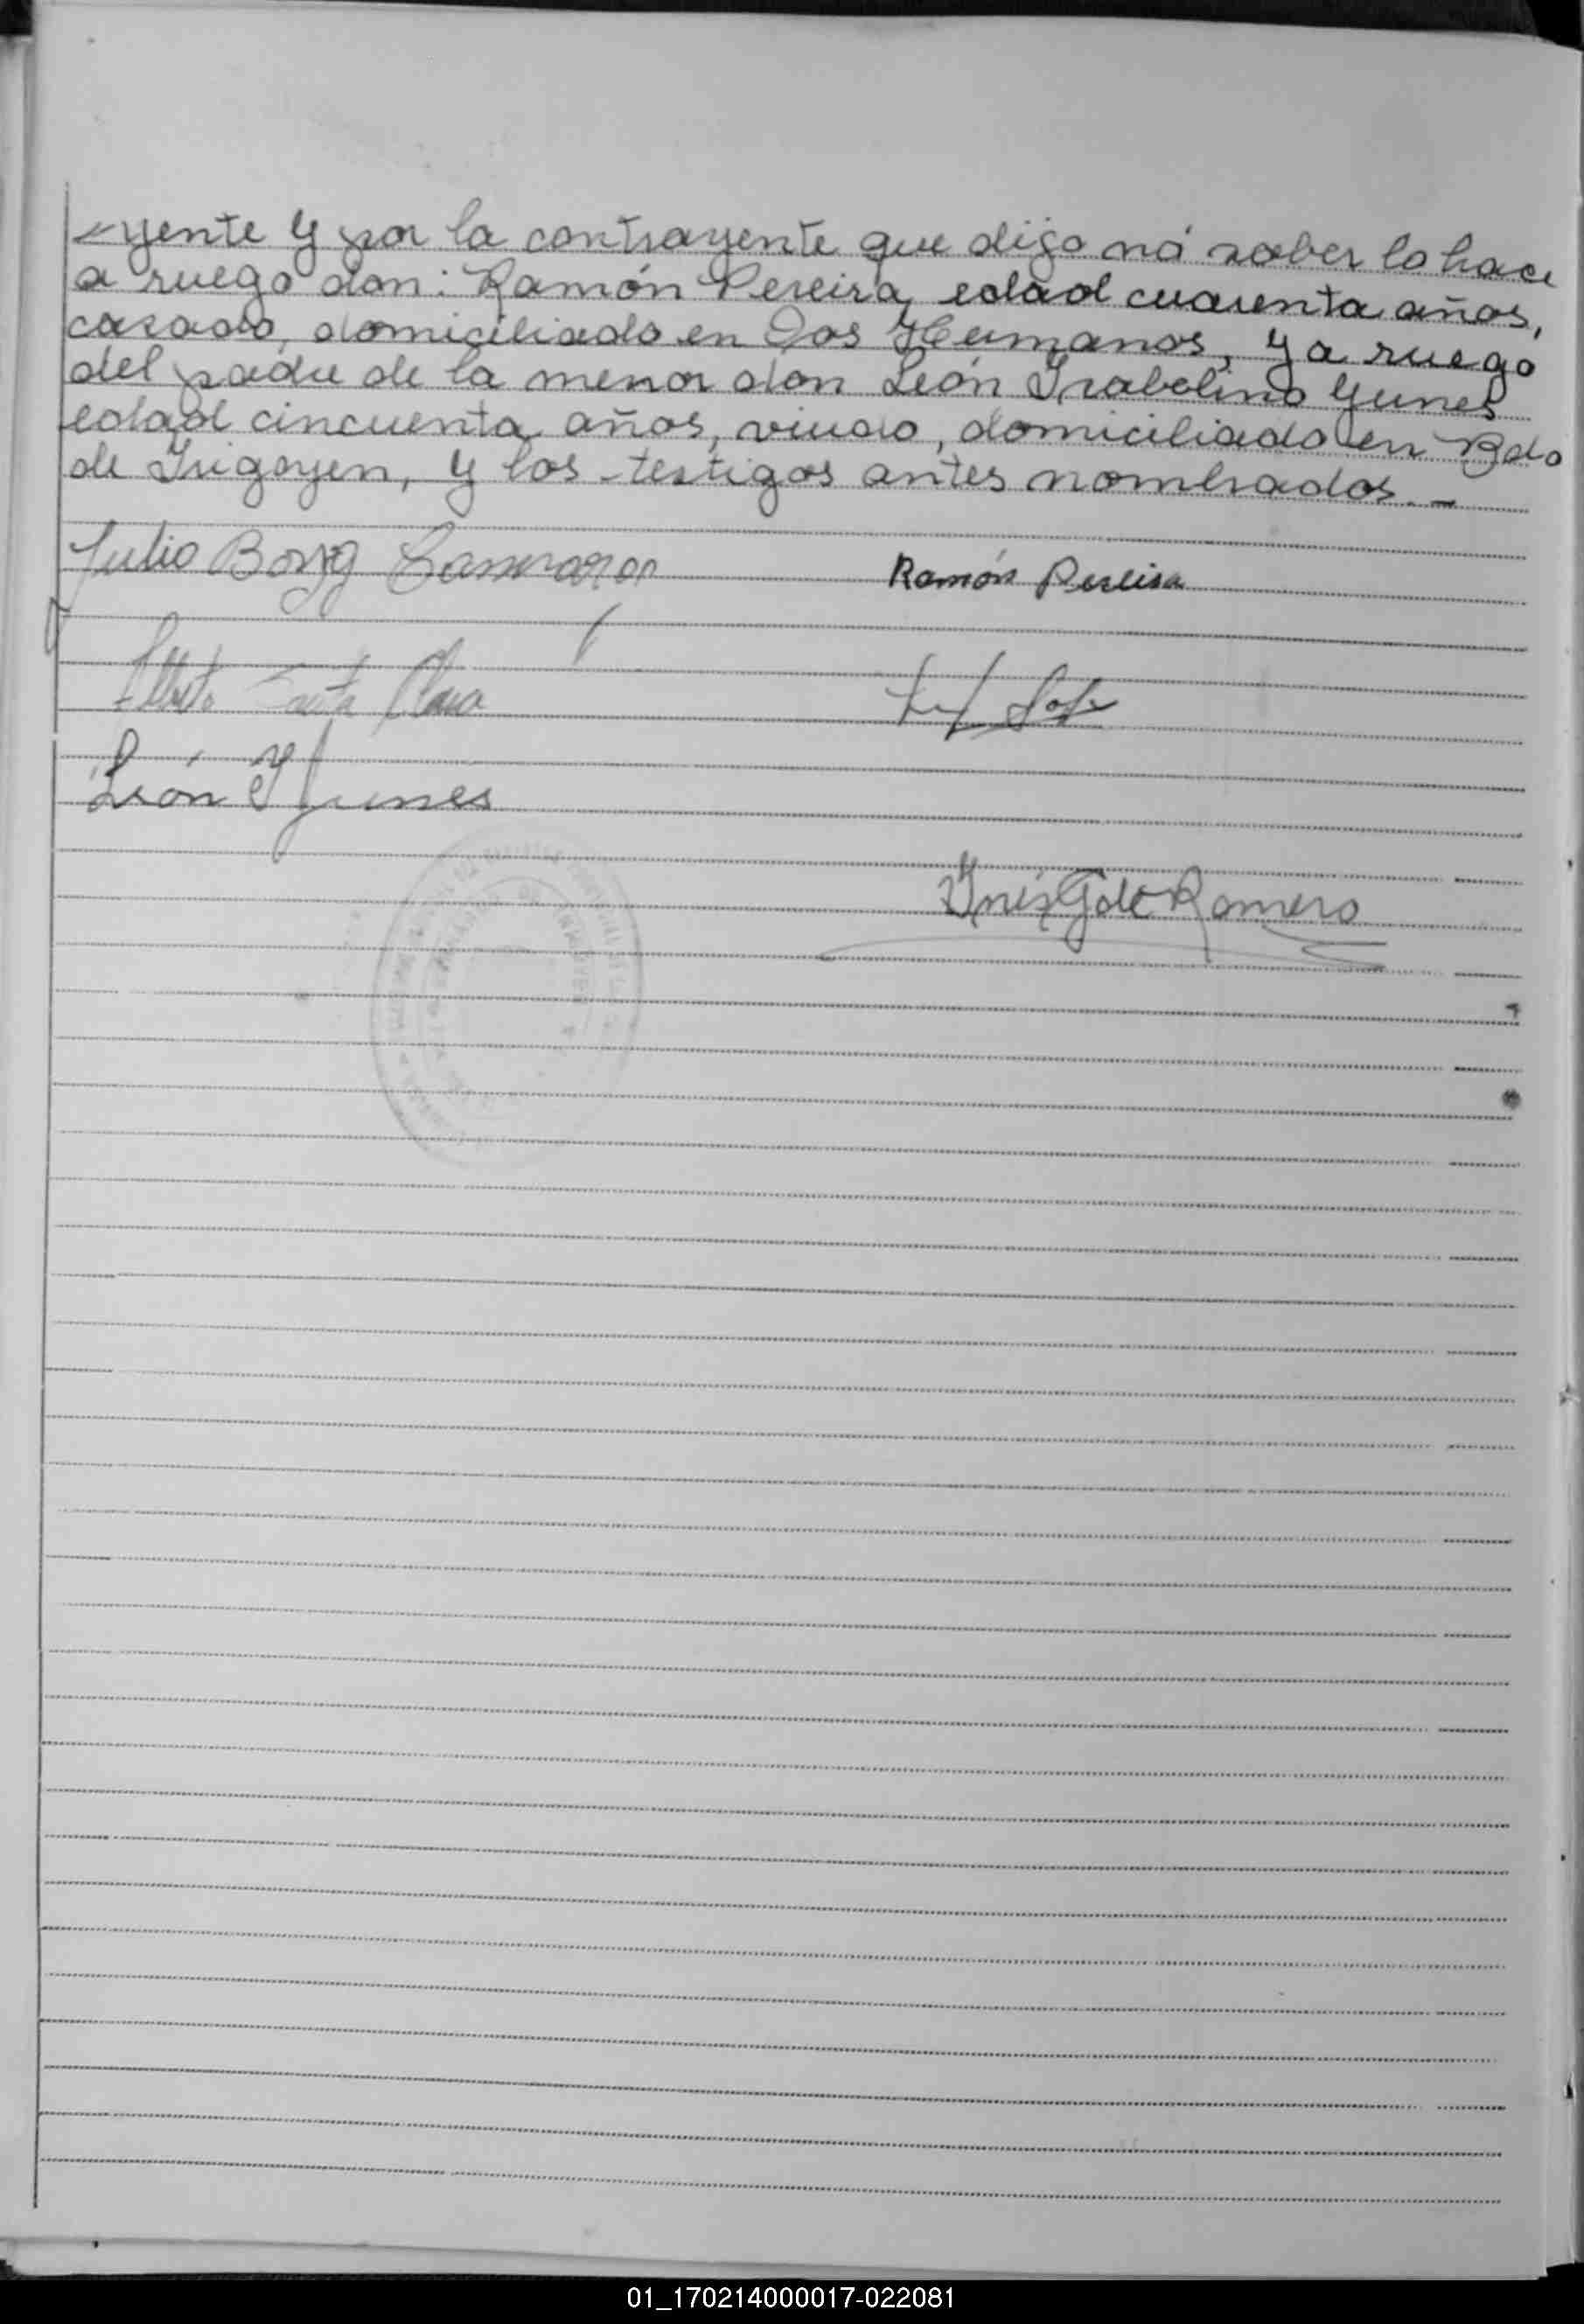 -yente y por la contrayente que dijo no saber lo hace
a ruego don: Ramón Pereira, edad cuarenta años,
casado, domiciliado en Dos Hermanos, y a ruego
del padre de la menor don León Trabelino Yunes
edad cincuenta años, viudo, domiciliado en Bdo
de Irigoyen, y los testigos antes nombrados.-
Julio
Ramón Pereira
Alberto Santa Clara
León Yunes
Inés G de Romero
01_170214000017-022081